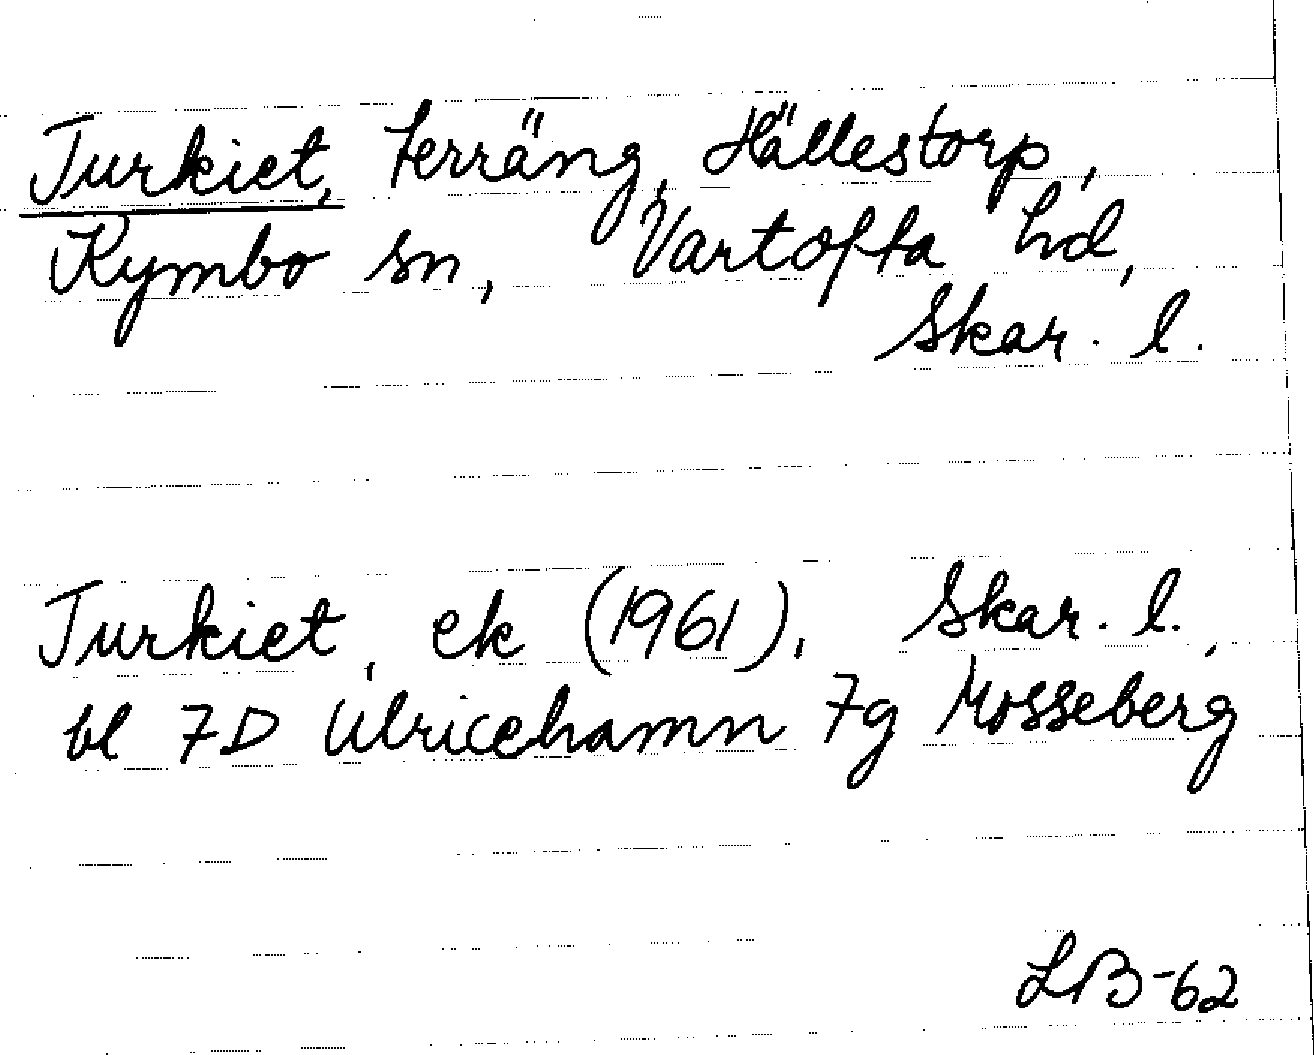 Turkiet, terräng, Hällestorp,
Kymbo sn, Vartofta hd,
Skar. l.
Turkiet, ek (1961), Skar. l.,
bl 7D Ulricehamn 7g Mosseberg
LB-62